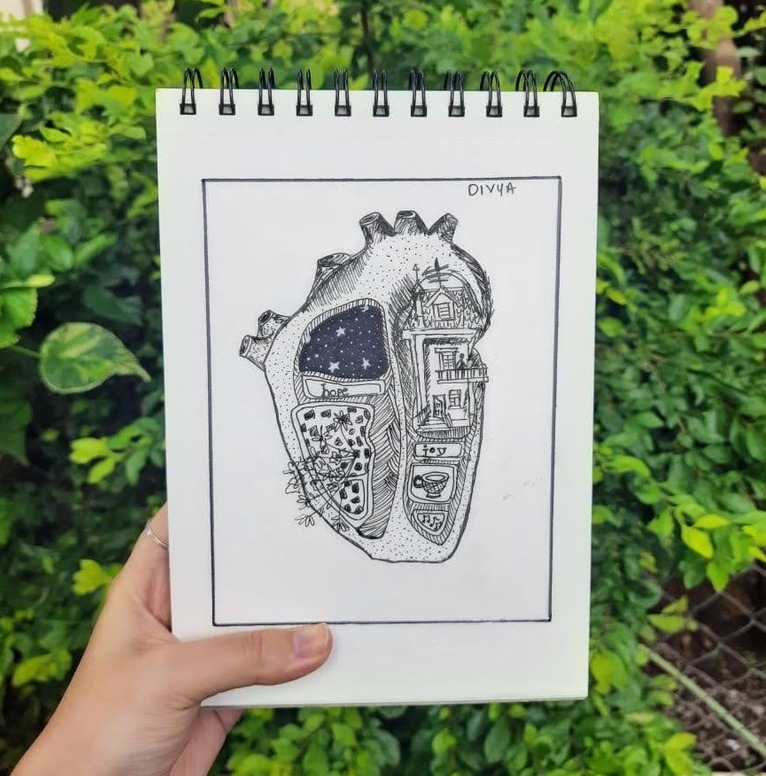 DIVYA
hope
joy